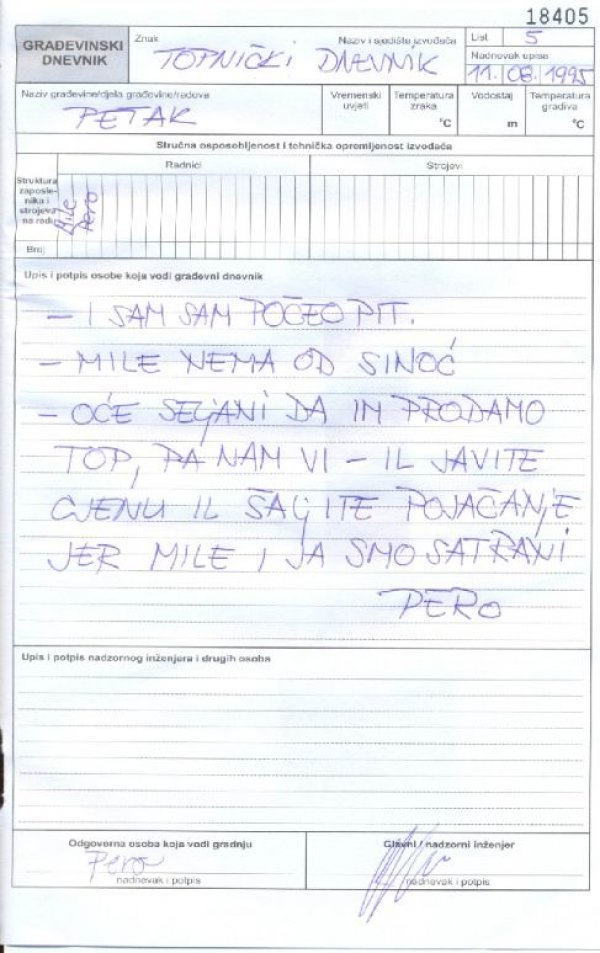 18405
GRAĐEVINSKI
DNEVNIK
Znak
Naziv i sjedište izvođača
TOPNIČKI DNEVNIK
List 5
Nadnevak upisa
11. 08. 1995
Naziv građevine/djela građevine/radova
PETAK
Vremenski
uvjeti
Temperatura
zraka
°C
Vodostaj
m
Temperatura
gradiva
°C
Stručna osposobljenost i tehnička opremljenost izvođača
Radnici
Strojevi
Struktura
zaposle-
nika i
strojeva
na radu
Mile
Pero
Broj
Upis i potpis osobe koja vodi građevni dnevnik
- I SAM SAM POČEO PIT.
- MILE NEMA OD SINOĆ
- OĆE SELJANI DA IM PRODAMO
TOP, PA NAM VI - IL JAVITE
CJENU IL ŠALJITE POJAČANJE
JER MILE I JA SMO SATRANI
PERO
Upis i potpis nadzornog inženjera i drugih osoba
Odgovorna osoba koja vodi gradnju
Pero
nadnevak i potpis
Glavni / nadzorni inženjer
nadnevak i potpis